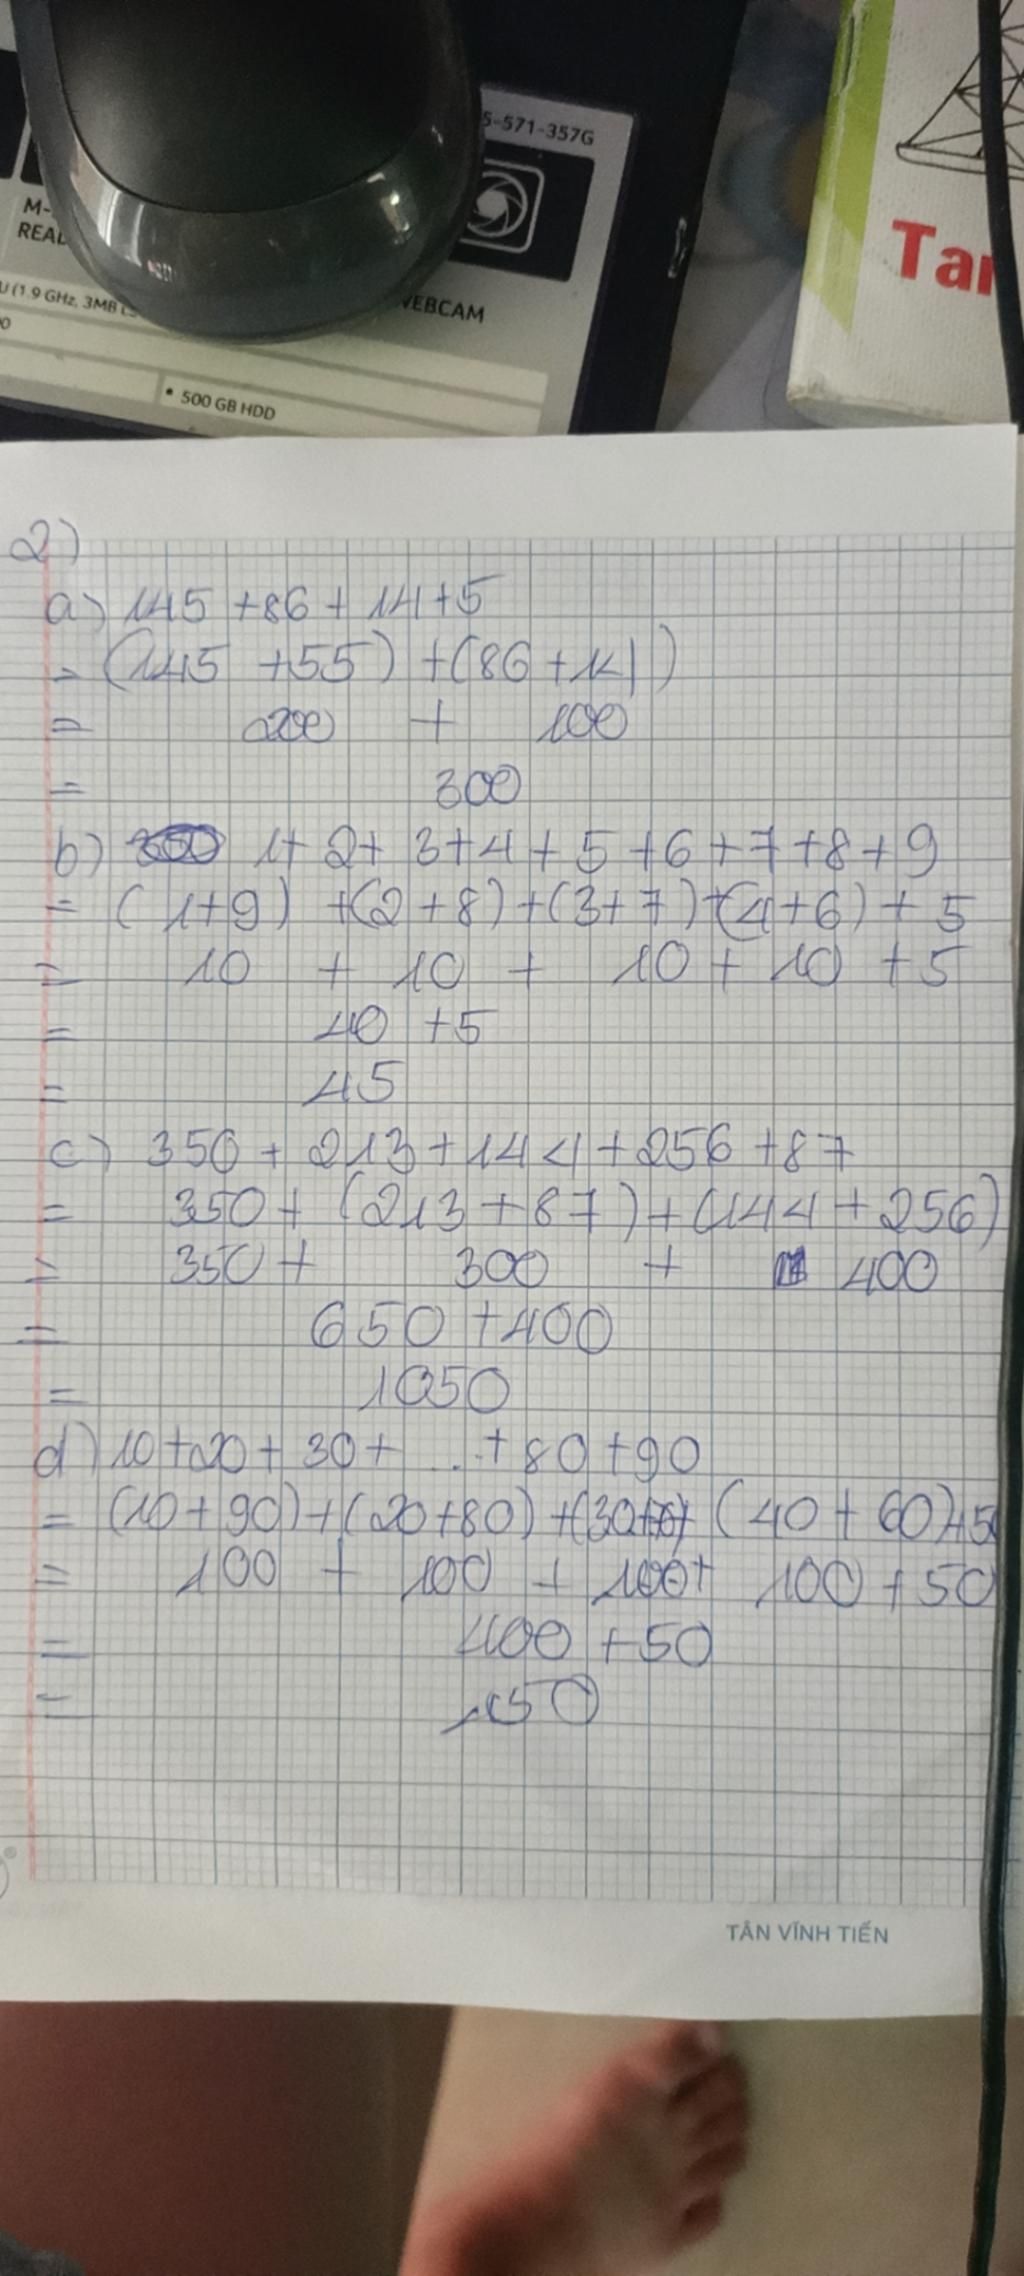 5-571-357G
M-
REAL
U (1.9 GHz, 3MB L3
WEBCAM
• 500 GB HDD
Tan
2)
a) 145 +86 + 14+5
= (145 +55) + (86 +14)
= 200 + 100
= 300
b) 1+ 2+ 3+4+5+6+7+8+9
= (1+9) +(2+8)+(3+7)+(4+6)+ 5
= 10 + 10 + 10 + 10 +5
= 40 +5
= 45
c) 350 + 213+144+256 +87
= 350+ (213+87)+(144+256)
= 350+ 300 + 400
= 650 +400
= 1050
d) 10+20+30+ ... + 80+90
= (10+90)+(20+80)+(30+70)+ (40+60)+50
= 100 + 100 + 100+ 100+50
= 400 +50
= 150
TÂN VĨNH TIẾN